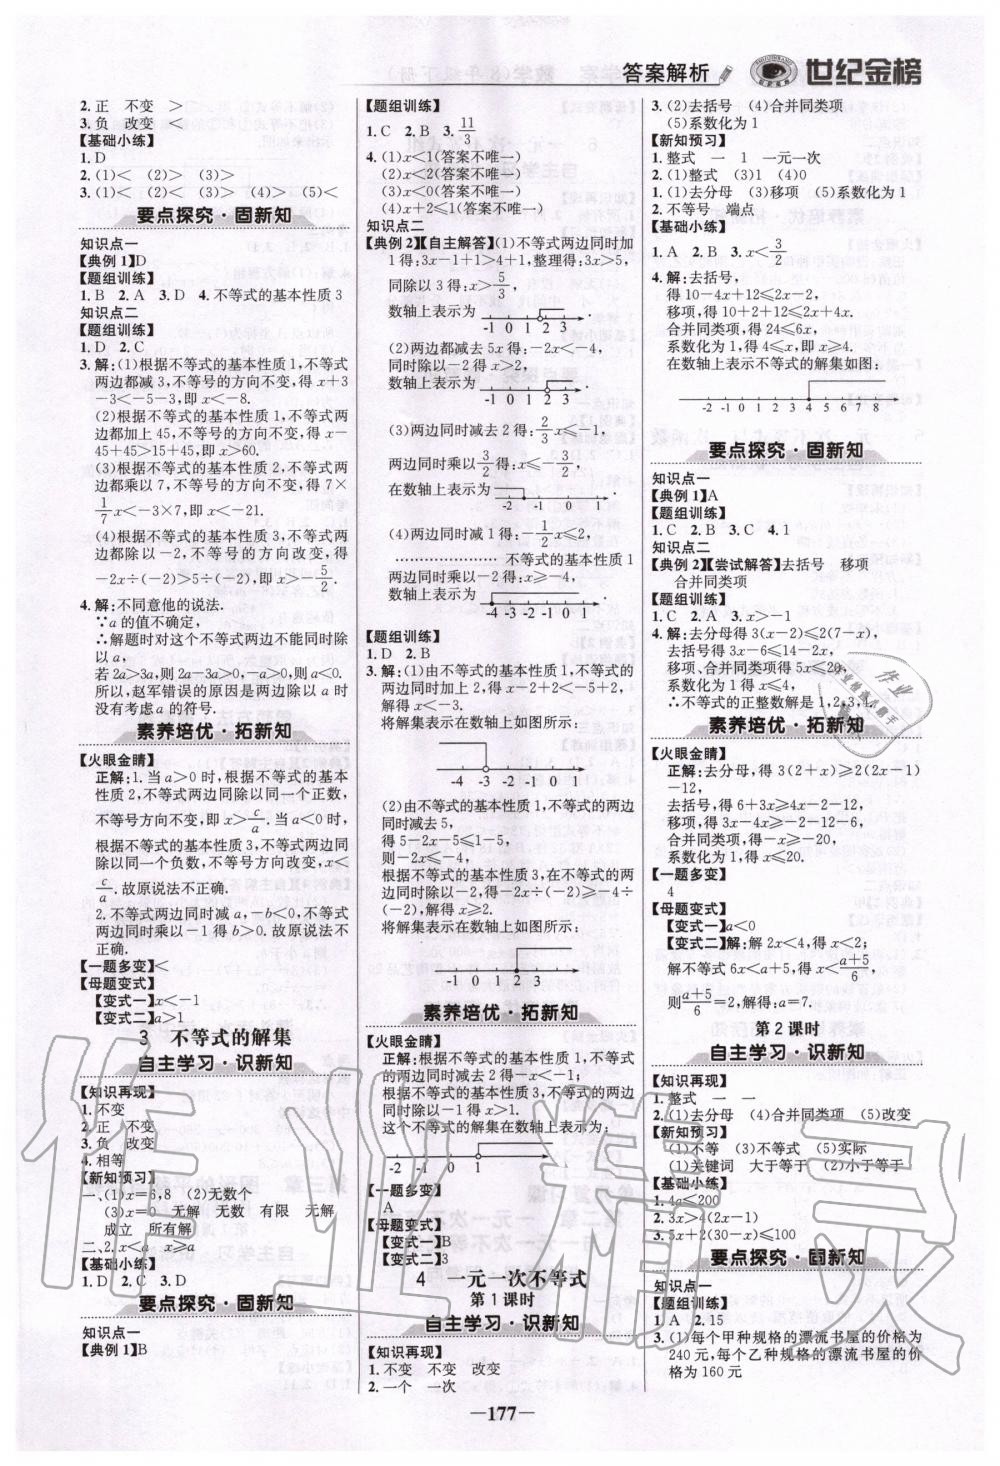 答案解析
世纪金榜
2.正 不变 >
3.负 改变
【基础小练】
1.D
2.(1)< (2)> (3)>
3.(1)< (2)< (3)> (4)> (5)<
要点探究·固新知
知识点一
【典例1】D
【题组训练】
1.B 2.A 3.D 4.不等式的基本性质3
知识点二
【题组训练】
1.D 2.C
3.解:(1)根据不等式的基本性质1,不等式
两边都减3,不等号的方向不变,得x+3
-3<-5-3,即x<-8.
(2)根据不等式的基本性质1,不等式两
边都加上45,不等号的方向不变,得x-
45+45>15+45,即x>60.
(3)根据不等式的基本性质2,不等式两
边都乘以7,不等号的方向不变,得7×
1/7x<-3×7,即x<-21.
(4)根据不等式的基本性质3,不等式两
边都除以-2,不等号的方向改变,得
-2x÷(-2)>5÷(-2),即x>-5/2.
4.解:不同意他的说法.
∵a的值不确定,
∴解题时对这个不等式两边不能同时除
以a,
若2a>3a,则2a-3a>0,-a>0,则a<0.
所以,赵军错误的原因是两边除以a时
没有考虑a的符号.
素养培优·拓新知
【火眼金睛】
正解:1.当a>0时,根据不等式的基本
性质2,不等式两边同除以同一个正数,
不等号方向不变,即x>c/a.当a<0时,
根据不等式的基本性质3,不等式两边同
除以同一个负数,不等号方向改变,x<
c/a.故原说法不正确.
2.不等式两边同时减a,-b<0,不等
式两边同乘以-1得b>0.故原说法不
正确.
【一题多变】<
【母题变式】
【变式一】x<-1
【变式二】a>1
3 不等式的解集
自主学习·识新知
【知识再现】
1.不变
2.正 不变
3.负 改变
4.相等
【新知预习】
一、(1)x=6,8 (2)无数个
(3)x=0 无解 无数 有限 无解
成立 所有解
二、2.x<a x⩾a
【基础小练】
1.D 2.C 3.D
要点探究·固新知
知识点一
【典例1】B
【题组训练】
1.C 2.B 3.11/3
4.(1)x<1(答案不唯一)
(2)x<2(答案不唯一)
(3)x<0(答案不唯一)
(4)x+2⩽1(答案不唯一)
知识点二
【典例2】【自主解答】(1)不等式两边同时加
1得:3x-1+1>4+1,整理得:3x>5,
同除以3得:x>5/3,
数轴上表示为
-1 0 1 2 3
(2)两边都减去5x得:-2x<-4,
同时除以-2得x>2,
数轴上表示为
-1 0 1 2 3
(3)两边同时减去2得:2/3x⩽-1,
两边同时乘以3/2得:x⩽-3/2,
在数轴上表示为
-5 -4 -3 -2 -1 0 1
(4)两边同时减1得:-1/2x⩽2,
……………不等式的基本性质1
两边同时乘以-2得:x⩾-4,
-4 -3 -2 -1 0 1
【题组训练】
1.D 2.B
3.解:(1)由不等式的基本性质1,不等式的
两边同时加上2,得x-2+2<-5+2,
解得x<-3.
将解集表示在数轴上如图所示:
-4 -3 -2 -1 0 1
(2)由不等式的基本性质1,不等式的两边
同时减去5,
得5-2x-5⩽1-5,
则-2x⩽-4,
根据不等式的基本性质3,在不等式的两
边同时除以-2,得-2x÷(-2)⩾-4÷
(-2),解得x⩾2.
将解集表示在数轴上如图所示:
-1 0 1 2 3
素养培优·拓新知
【火眼金睛】
正解:根据不等式的基本性质1,不等式的
两边同时减去2得-x<-1.
根据不等式的基本性质3,不等式的两边
同时除以-1得x>1.
这个不等式的解集在数轴上表示为:
-2 -1 0 1
【一题多变】
A
【母题变式】
【变式一】B
【变式二】3
4 一元一次不等式
第1课时
自主学习·识新知
【知识再现】
1.不变 不变 改变
2.一个 一次
3.(2)去括号 (4)合并同类项
(5)系数化为1
【新知预习】
1.整式 一 1 一元一次
2.(1)整式 (3)1 (4)0
1.(1)去分母 (3)移项 (5)系数化为1
2.不等号 端点
【基础小练】
1.A 2.B 3.x<3/2
4.解:去括号,
得10-4x+12⩽2x-2,
移项,得10+2+12⩽2x+4x.
合并同类项,得24⩽6x,
系数化为1,得4⩽x,即x⩾4.
在数轴上表示不等式的解集如图:
-2 -1 0 1 2 3 4 5 6 7 8
要点探究·固新知
知识点一
【典例1】A
【题组训练】
1.C 2.B 3.C 4.1
知识点二
【典例2】【尝试解答】去括号 移项
合并同类项
【题组训练】
1.C 2.A 3.x>-1
4.解:去分母得3(x-2)⩽2(7-x),
去括号得3x-6⩽14-2x,
移项、合并同类项得5x⩽20,
系数化为1得x⩽4,
∴不等式的正整数解是1,2,3,4.
素养培优·拓新知
【火眼金睛】
正解:去分母,得3(2+x)⩾2(2x-1)
-12,
去括号,得6+3x⩾4x-2-12,
移项,得3x-4x⩾-2-12-6,
合并同类项,得-x⩾-20,
系数化为1,得x⩽20.
【一题多变】
4
【母题变式】
【变式一】a<0
【变式二】解:解2x<4,得x<2;
解不等式6x<a+5,得x<(a+5)/6,
则(a+5)/6=2,解得:a=7.
第2课时
自主学习·识新知
【知识再现】
1.整式 一 一
2.(1)去分母 (4)合并同类项 (5)改变
【新知预习】
(1)不等 (3)不等式 (5)实际
(1)关键词 大于等于 (2)小于等于
【基础小练】
1.4a⩽200
2.3x>4(2-x)
3.5x+2(30-x)⩽100
要点探究·固新知
知识点一
【题组训练】
1.A 2.15
3.(1)每个甲种规格的漂流书屋的价格为
240元,每个乙种规格的漂流书屋的价
格为160元
—177—